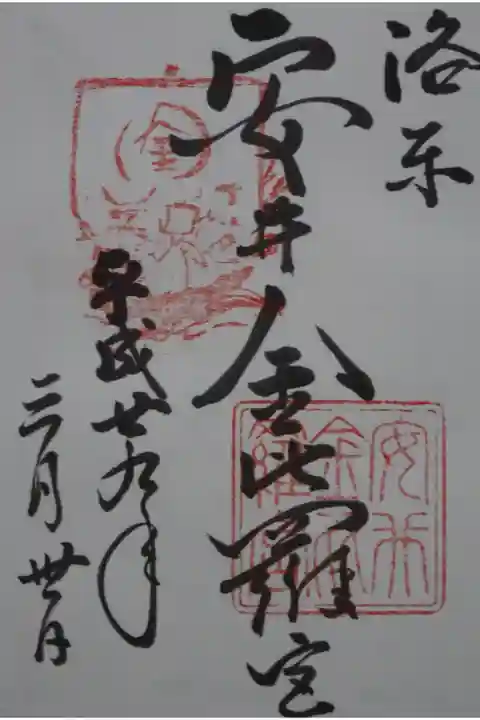 洛東
安井金比羅宮
平成廿九年
三月卅日
安井
金比
羅宮
金